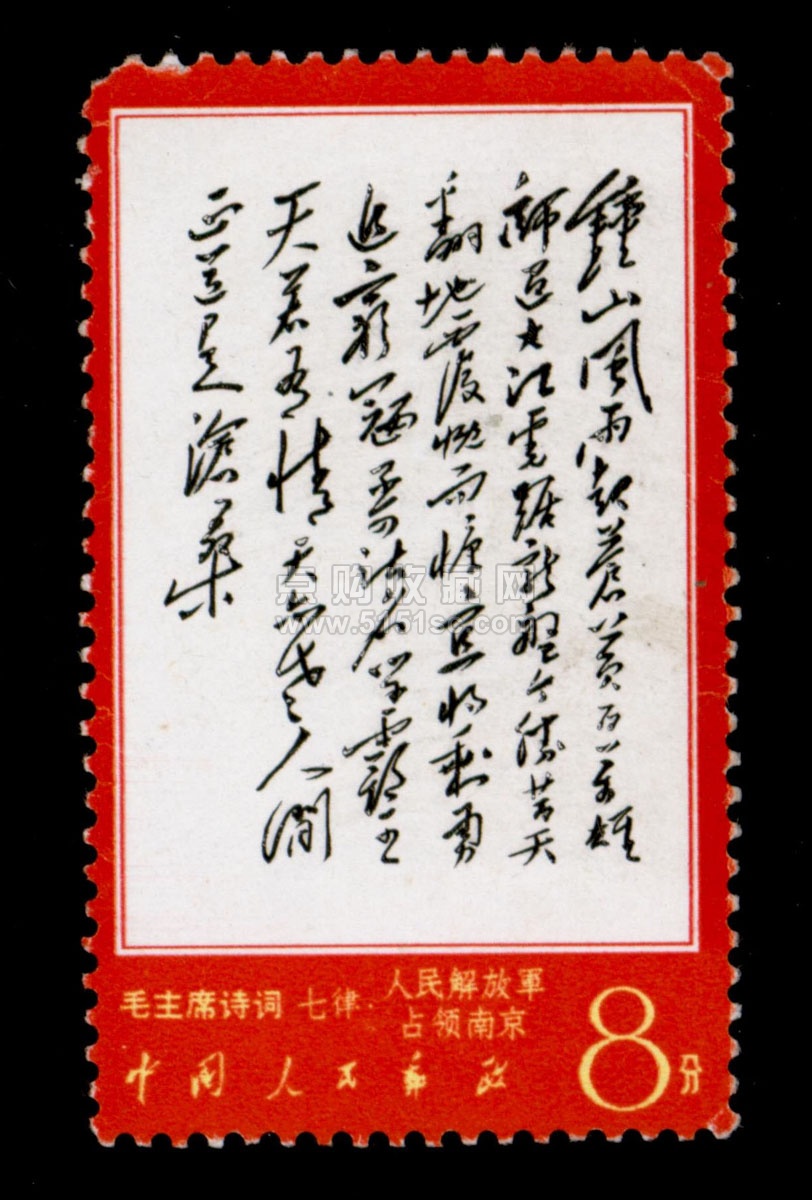 鐘山風雨起蒼黃百萬雄
師過大江虎踞龍盤今勝昔天
翻地覆慨而慷宜將剩勇
追窮寇不可沽名學霸王
天若有情天亦老人間
正道是滄桑
点购收藏网
www.5151sc.com
毛主席诗词 七律·人民解放軍
占领南京
中国人民邮政
8分